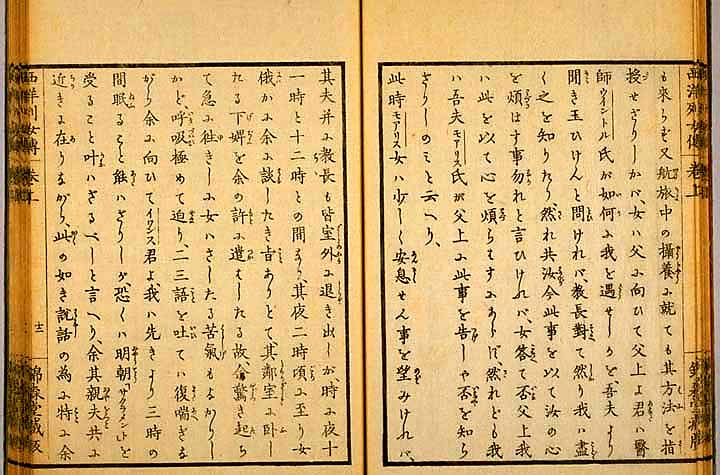 も來らず又航旅中の攝養に就ても其方法を指
授せざりしかバ、女ハ父に向ひて父上よ君ハ醫
師ウイントル氏が如何に我を遇せしかを吾夫より
聞き玉ひけんと問けれバ教長對て然り我ハ盡
く之を知りたり、然れ共汝今此事を以て汝の心
を煩はす事勿れと言ひけれバ、女答て否父上よ我
ハ此を以て心を煩らすにあらず、然れども我
ハ吾夫モアリス氏が父上に此事を告しや否を知ら
ざりしのミと云へり、
此時モアリス女ハ少しく安息せん事を望みけれバ、
其夫并に教長も皆室外に退き出しが、時に夜十
一時と十二時との間なり、其夜二時頃に至り女
俄かに余に談したき旨ありとて、其鄰室に臥し
たる下婢を余の許に遣せしたる故余驚き起ち
て急に往きしに女ハさしたる苦氣もなかりし
かど、呼吸極めて迫り、二三語を吐てハ復喘ぎな
がら余に向ひてイワンス君よ我ハ先きより三時の
間眠ること能ハざりしが恐くハ明朝「サクラメント」を
受ること叶ハざるべしと言へり、余其親夫共に
近きに在りながら、此の如き說話の為に特に余
西洋列女傳 卷上
十一
錦森堂藏版